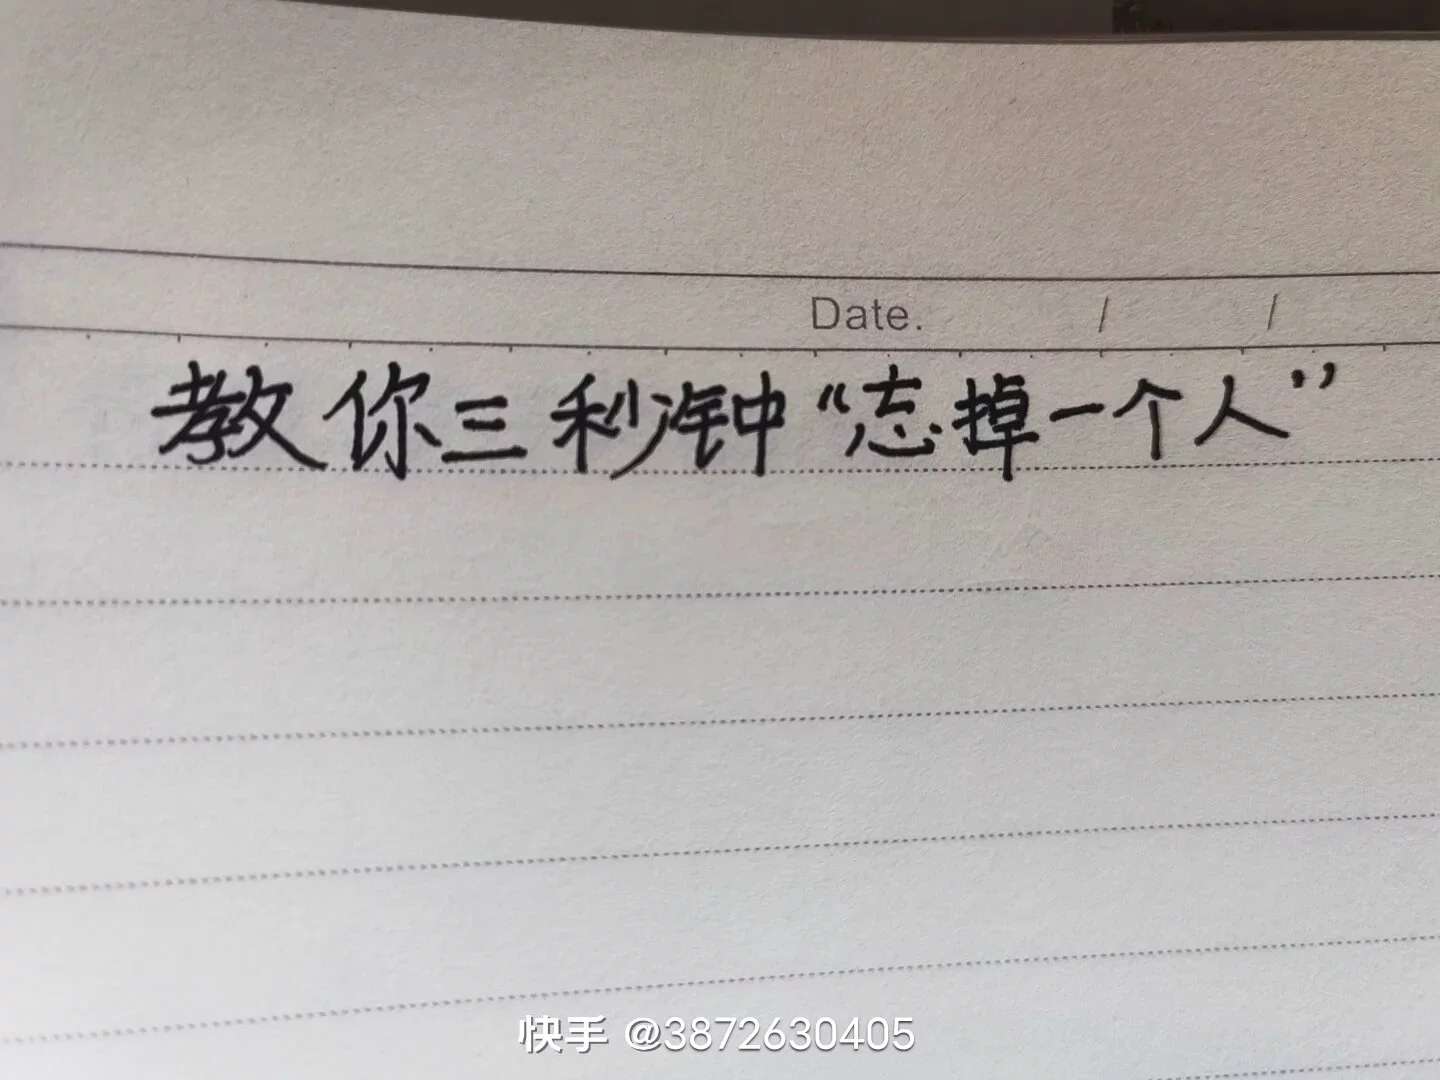 Date. / /
教你三秒钟“忘掉一个人”
快手 @3872630405